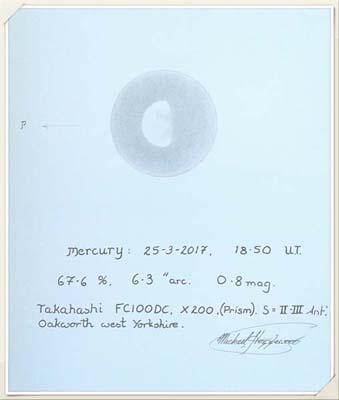 P
Mercury: 25-3-2017, 18·50 U.T.
67·6 %, 6·3 "arc. 0·8 mag.
Takahashi FC100DC, X200.(Prism). S = II-III Ant.
Oakworth west Yorkshire.
Michael